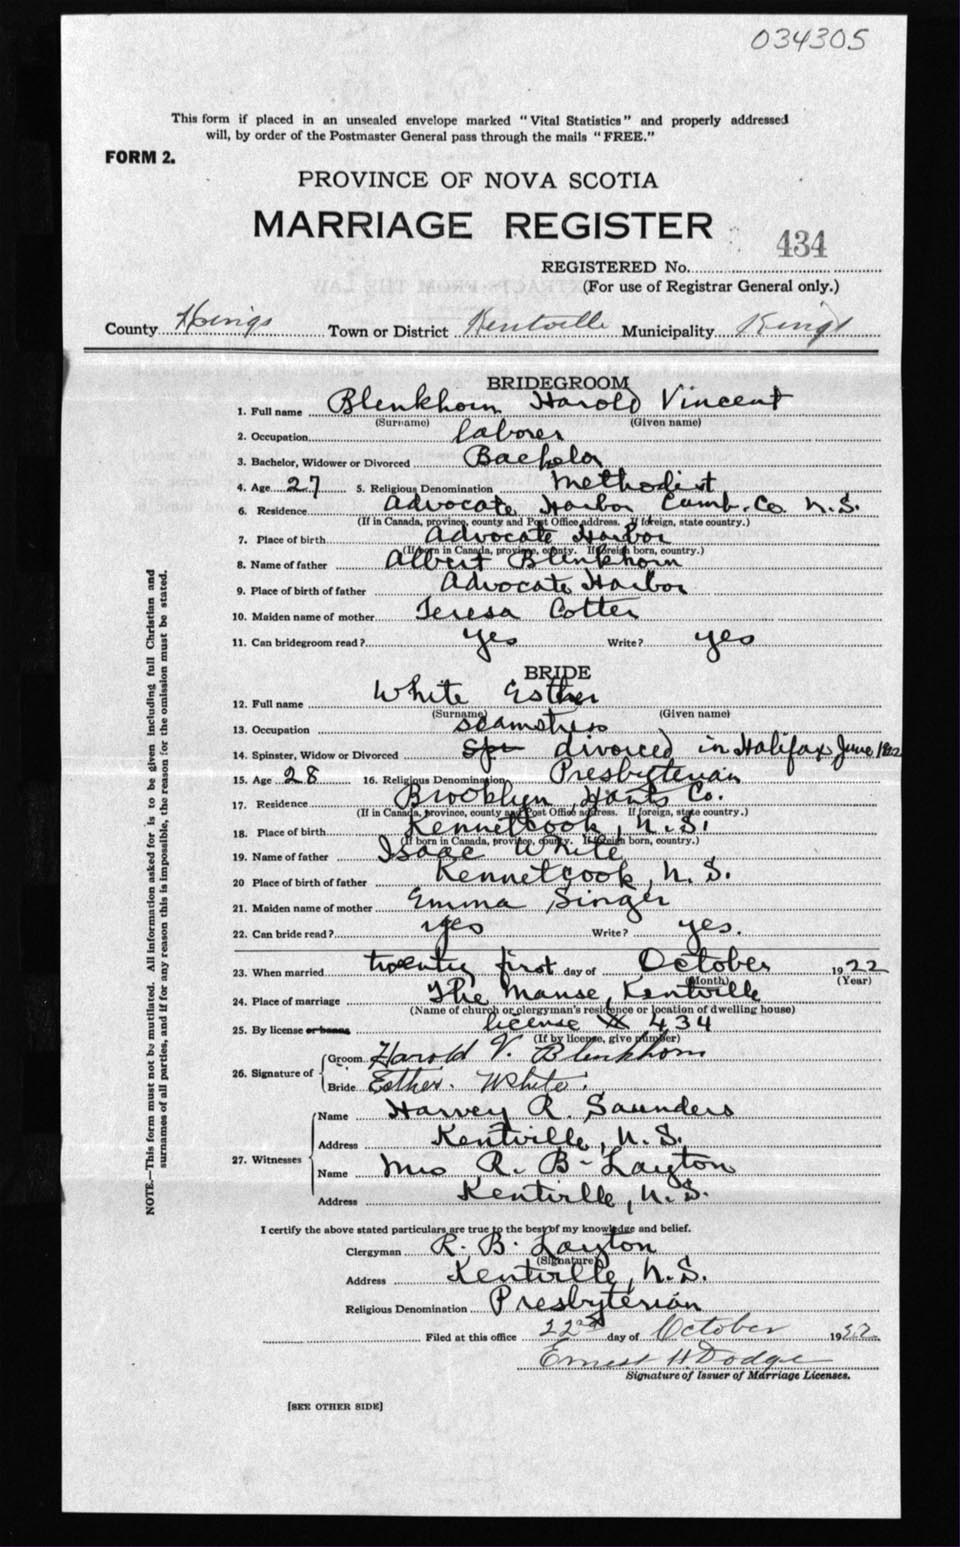 034305
This form if placed in an unsealed envelope marked "Vital Statistics" and properly addressed
will, by order of the Postmaster General pass through the mails "FREE."
FORM 2.
PROVINCE OF NOVA SCOTIA
MARRIAGE REGISTER
434
REGISTERED No.
(For use of Registrar General only.)
County Kings Town or District Kentville Municipality Kings
BRIDEGROOM
1. Full name Blenkhorn Harold Vincent
(Surname) (Given name)
2. Occupation laborer
3. Bachelor, Widower or Divorced Bachelor
4. Age 27 5. Religious Denomination Methodist
6. Residence Advocate Harbor Cumb. Co N.S.
(If in Canada, province, county and Post Office address. If foreign, state country.)
7. Place of birth Advocate Harbor
(If born in Canada, province, county. If foreign born, country.)
8. Name of father Albert Blenkhorn
9. Place of birth of father Advocate Harbor
10. Maiden name of mother Teresa Cotter
11. Can bridegroom read? yes Write? yes
BRIDE
12. Full name White Esther
(Surname) (Given name)
13. Occupation seamstress
14. Spinster, Widow or Divorced Spi divorced in Halifax June 1922
15. Age 28 16. Religious Denomination Presbyterian
17. Residence Brooklyn, Hants Co.
(If in Canada, province, county and Post Office address. If foreign, state country.)
18. Place of birth Kennetcook, N.S.
(If born in Canada, province, county. If foreign born, country.)
19. Name of father Isaac White
20 Place of birth of father Kennetcook, N.S.
21. Maiden name of mother Emma Singer
22. Can bride read? yes Write? yes.
23. When married twenty first day of October 1922
(Month) (Year)
24. Place of marriage The Manse, Kentville
(Name of church or clergyman's residence or location of dwelling house)
25. By license or banns license 434
(If by license, give number)
26. Signature of Groom Harold V. Blenkhorn
Bride Esther. White.
27. Witnesses Name Harvey R. Saunders
Address Kentville, N.S.
Name Mrs R. B. Layton
Address Kentville, N.S.
I certify the above stated particulars are true to the best of my knowledge and belief.
Clergyman R. B. Layton
(Signature)
Address Kentville, N.S.
Religious Denomination Presbyterian
Filed at this office 22nd day of October 1922
Ernest H Dodge
Signature of Issuer of Marriage Licenses.
[SEE OTHER SIDE]
NOTE.—This form must not be mutilated. All information asked for is to be given including full Christian and
surnames of all parties, and if for any reason this is impossible, the reason for the omission must be stated.